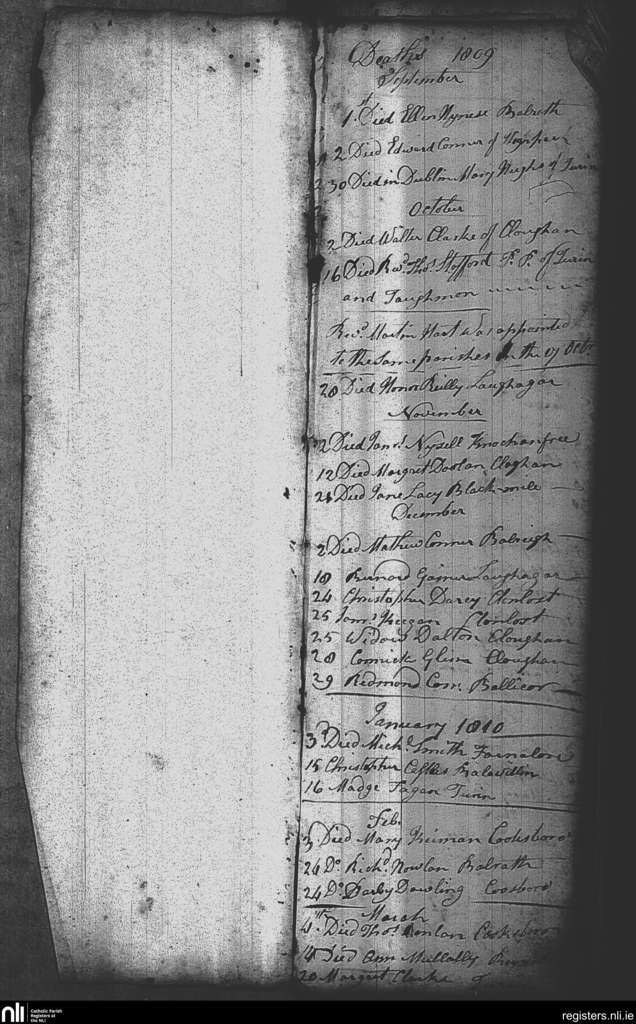 Deaths 1809
September
1st Died Ellen Nynese Balrath
2 Died Edward Conner of
30 Died in Dublin Mary Hughs of Turin
October
2 Died Walter Clarke of Cloughan
16 Died Revd. Thos. Stofford P. P. of Turin
and Taughmon
Revd. Martin Hart was appointed
to the same parishes on the 17 Octr.
28 Died Honor Reilly Laughagar
November
2 Died Jams. Nysell Knockanfree
12 Died Margret Doolan Cloghan
21 Died Jane Lacy Black-mile
December
2 Died Mathew Conner Balreigh
18 Bernard Gainer Laughagar
24 Christopher Darcy Clonlost
25 Jams. Keegan Clonlost
25 Widow Dalton Cloughan
28 Cormick Glenn Cloughan
29 Redmond Com. Ballicor
January 1810
3d Died Michl. Smith Farnalore
15 Christopher Balavillin
16 Madge Fagan Turin
Feb.
3 Died Mary Keirnan Cooksboro
24 Do. Richd. Nowlan Balrath
24 Do. Darby Dowling Cooxboro
March
4th Died Thos. Conlan Cooksboro
4 Died Ann Mullally
20 Margret Clarke of
nli
Catholic Parish
Registers at
the NLI
registers.nli.ie